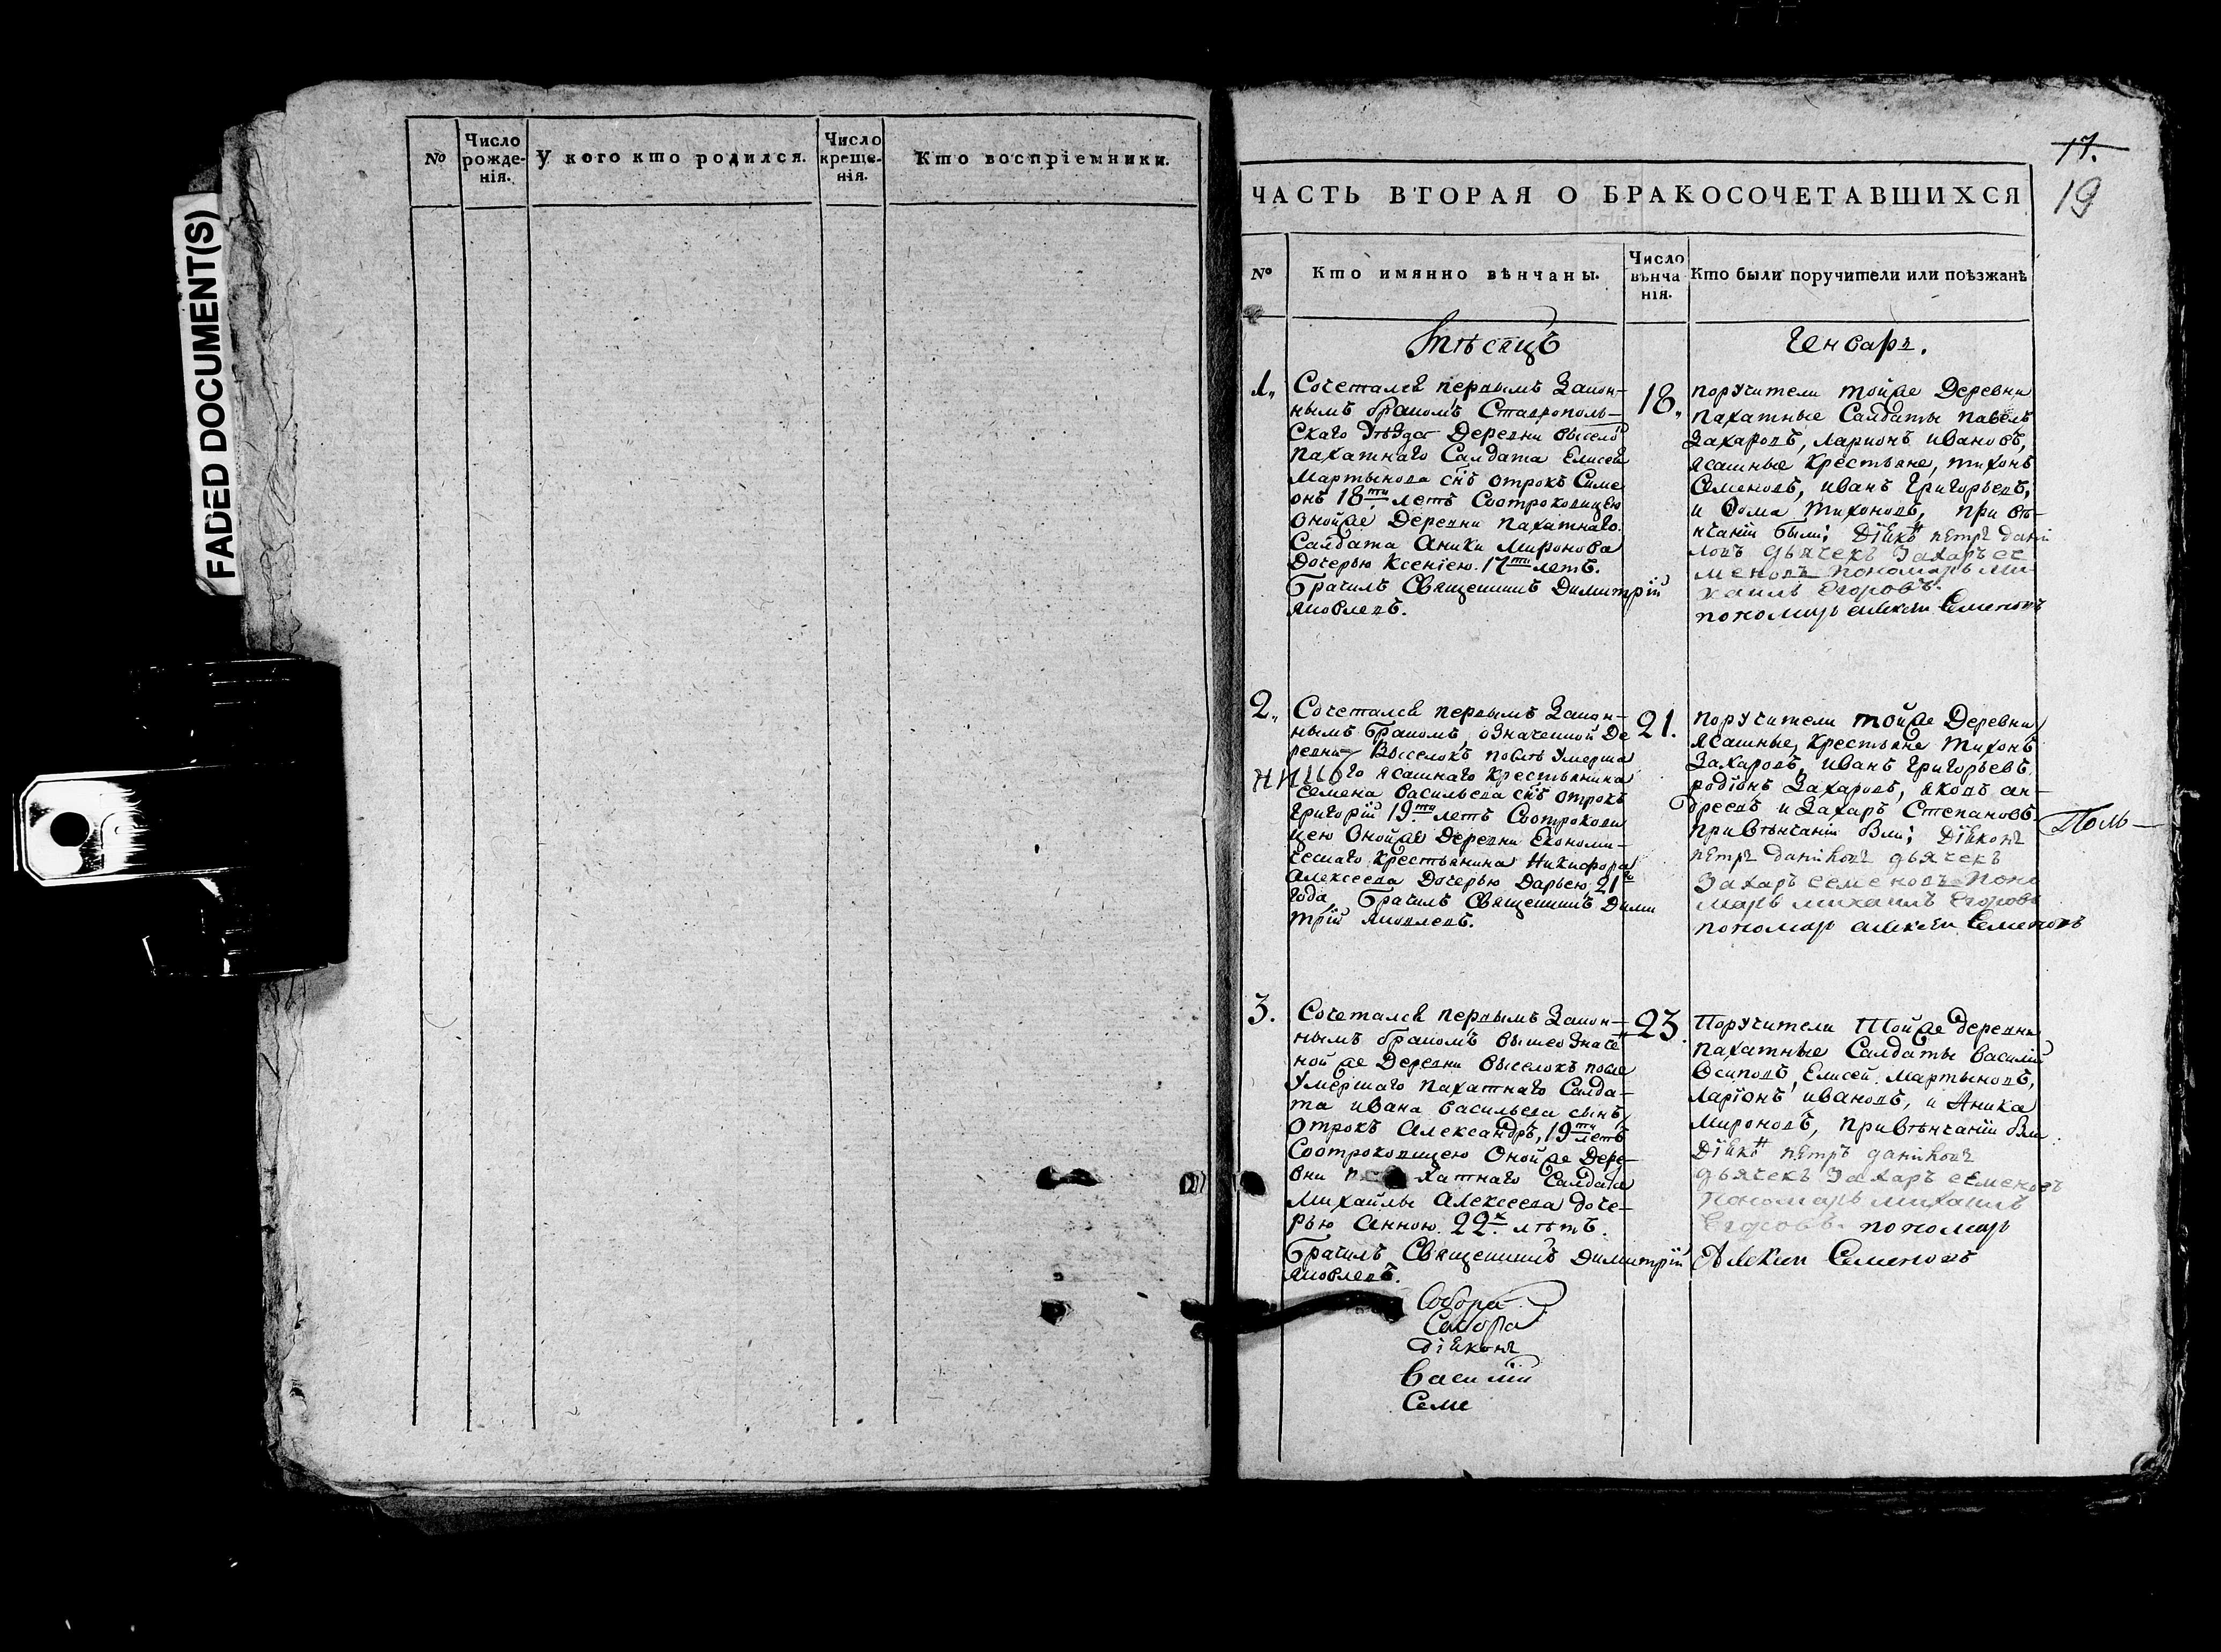 FADED DOCUMENT(S)
№
Число рожде-нія.
У кого кто родился.
Число креще-нія.
Кто воспріемники.
17.
19
ЧАСТЬ ВТОРАЯ О БРАКОСОЧЕТАВШИХСЯ
№
Кто имянно вѣнчаны.
Число вѣнча нія.
Кто были поручители или поѣзжанѣ
Мѣсяцъ
Генварь.
1,,
Сочетался первымъ Закон-
нымъ бракомъ Ставрополь-
скаго уѣзда Деревни высело
пахатнаго Салдата Елисея
Мартынова снъ отрокъ Симе
онъ 18ти летъ Соотроковицею
оной же Деревни пахатнаго
Салдата Аники Миронова
Дочерью Ксеніею. 17ти летъ.
Брачилъ Священникъ Димитрій
Яковлевъ.
18,,
поручители той же Деревни
пахатные Салдаты павелъ
Захаровъ, ларионъ ивановъ,
ясашные крестьяне, тихонъ
Семеновъ, иванъ григорьевъ,
и Ѳома тихоновъ, при вѣ-
нчаніи были; Діяконъ петръ дани
ловъ дьячекъ Захаръ се
меновъ пономарь ми
хаилъ Егоровъ.
пономарь алексѣи Семеновъ
2,,
Сочетался первымъ Закон-
нымъ бракомъ, означенной Де
ревни Выселокъ послѣ умерша
го ясашнаго крестьянина
семена васильева снъ отрокъ
григорій 19ти летъ Соотрокови
цею оной же Деревни Економи-
ческаго крестьянина Никифора
алексеева Дочерью Дарьею, 21го
года, Брачилъ Священникъ Дими
трій Яковлевъ.
21.
поручители той же Деревни
ясашные, крестьяне тихонъ
Захаровъ, иванъ григорьевъ,
родіонъ Захаровъ, яковъ ан-
дреевъ и Захаръ Степановъ.
при вѣнчаніи были; Діяконъ
петръ даниловъ дьячекъ
Захаръ семеновъ поно
марь михаилъ Егоровъ
пономарь алексѣи Семеновъ
Поль-
3.
Сочетался первымъ Закон-
нымъ бракомъ вышеозначе
ной же Деревни выселокъ после
умершаго пахатнаго Салда-
та ивана васильева сынъ
отрокъ александръ, 19ти летъ
Соотроковицею оной же Дере-
вни пахатнаго Салдата
михайлы алексеева доче-
рью анною. 22х лѣтъ.
Брачилъ Священникъ Димитрій
Яковлевъ.
23.
Поручители той же деревни
пахатные Салдаты василій
Осиповъ, Елисей мартыновъ,
ларіонъ ивановъ, и Аника
мироновъ, при вѣнчаніи были
Діяконъ петръ даниловъ
дьячекъ Захаръ семеновъ
пономарь михаилъ
Егоровъ. пономарь
Алексѣи Семеновъ
Собора
Самара
діяконъ
василій
Семе